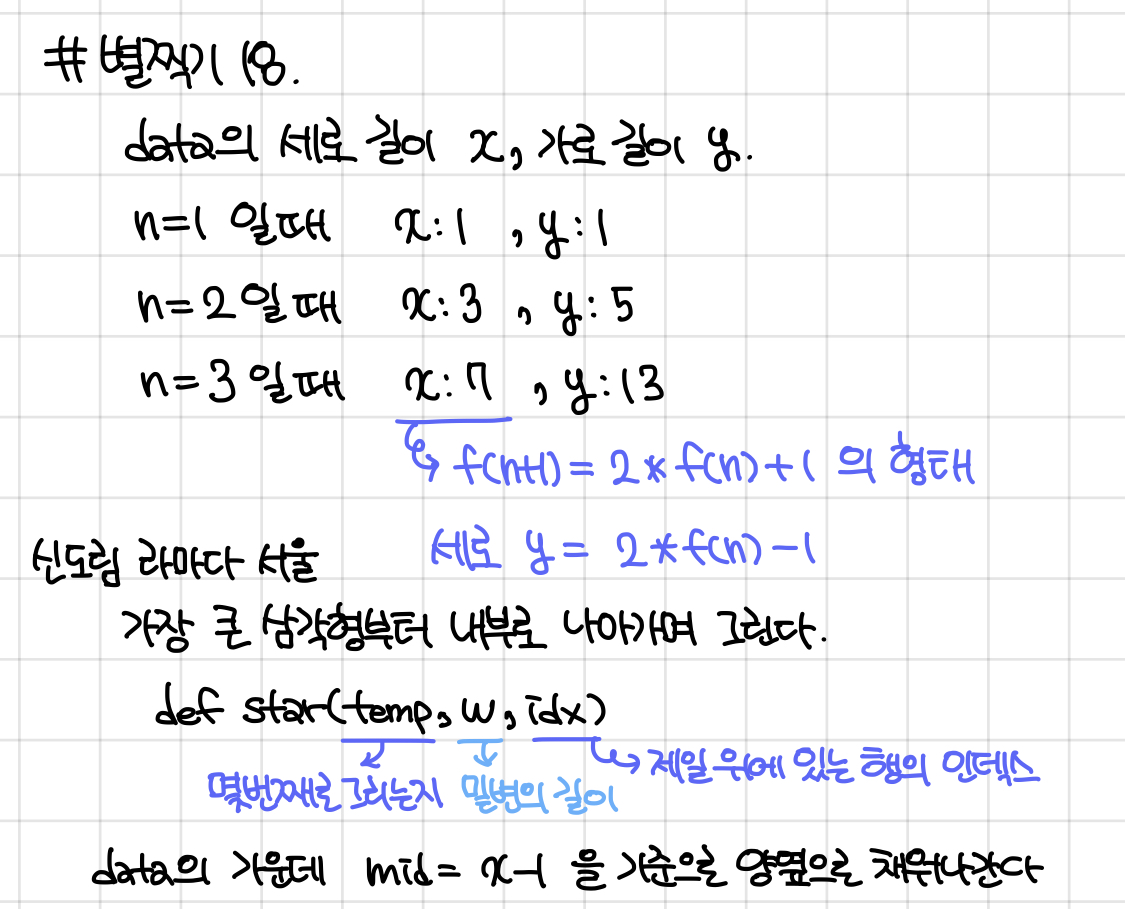 # 별찍기 18.
data의 세로 길이 x, 가로 길이 y.
n=1 일때 x:1 , y:1
n=2 일때 x:3 , y:5
n=3 일때 x:7 , y:13
f(n+1) = 2*f(n)+1 의 형태
세로 y = 2*f(n)-1
신도림 라마다 서울
가장 큰 삼각형부터 내부로 나아가며 그린다.
def star(temp, w, idx)
제일 위에 있는 행의 인덱스
몇번째로 그리는지 밑변의 길이
data의 가운데 mid = x-1 을 기준으로 양옆으로 채워나간다